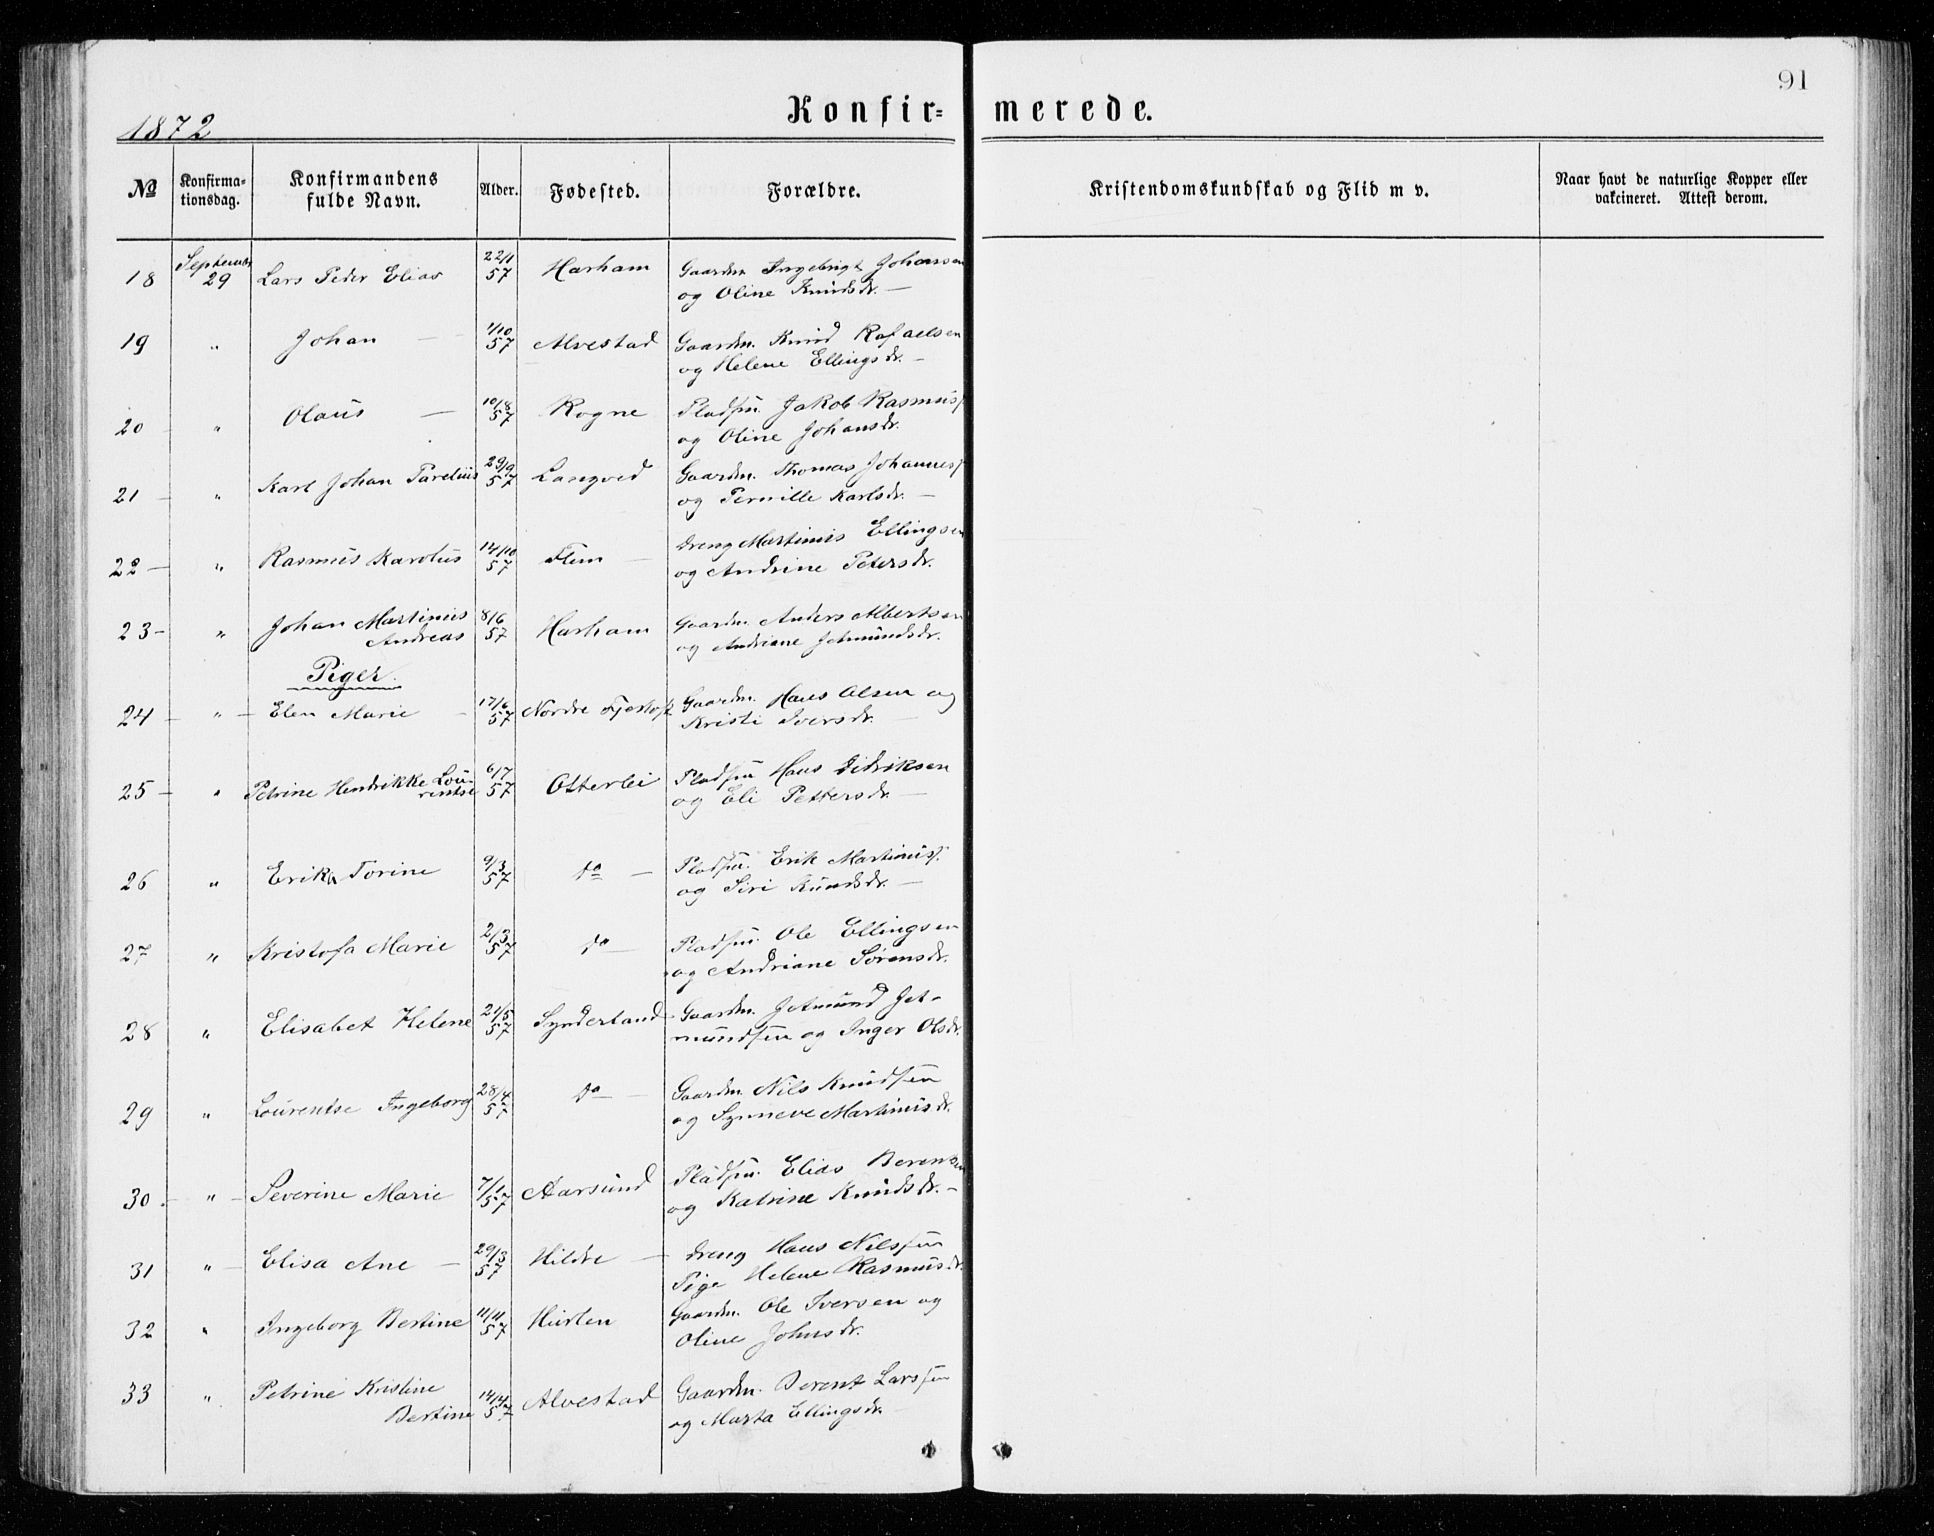 91
1872
Konfir= merede.
№ Konfirma= tionsdag. Konfirmandens fulde Navn. Alder. Fødested. Forældre. Kristendomskundskab og Flid m v. Naar havt de naturlige Kopper eller vakcineret. Attest derom.
18 September 29 Lars Peder Elias 22/1 57 Harham Gaardm. Ingebrigt Johansen
og Oline Knudsdr. —
19 " Johan — 1/10 57 Alvestad Gaardm. Knud Rafaelsen
og Helene Ellingsdr. —
20 — " Olaus — 10/8 57 Rogne Pladsm. Jakob Rasmuss.
og Oline Johansdr.
21 — " Karl Johan Parelius 29/9 57 Langved Gaardm. Thomas Johanness.
og Pernille Karlsdr. —
22 — " Rasmus Karolus 14/10 57 Flem — Dreng Martinus Ellingsen
og Andrine Petersdr.
23 — " Johan Martinus 8/6 57 Harham Gaardm. Anders Albertsen
Andreas og Andriane Jetmundsdr.
Piger.
24 — " — Elen Marie — 17/6 57 Nordre Fjørtoft Gaardm. Hans Olsen og
Kristi Iversdr. —
25 — " Petrine Hendrikke Lou- 6/7 57 Otterlei Pladsm. Hans Didriksen
rentse og Eli Pettersdr. —
26 " Erika Torine 9/3 57 do — Pladsm. Erik Martinuss.
og Siri Knudsdr. —
27 " Kristofa Marie 2/3 57 do — Pladsm. Ole Ellingsen
og Andriane Sørensdr.
28 " Elisabet Helene 21/5 57 Synderland Gaardm. Jetmund Jet-
mundsen og Inger Olsdr.
29 " Lourentse Ingeborg 28/4 57 do — Gaardm. Nils Knudsen
og Synneve Martinusdr.
30 — " — Severine Marie 7/1 57 Aarsund Pladsm. Elias Berentsen
og Katrine Knudsdr. —
31 " — Elisa Ane — 29/3 57 Hildre — Dreng Hans Nilssen
Pige Helene Rasmusdr.
32 " Ingeborg Bertine 11/11 57 Husten Gaardm. Ole Iversen og
Oline Johnsdr.
33 " Petrine Kristine 57 Alvestad Gaardm. Berent Larssen
Bertine og Marta Ellingsdr. —